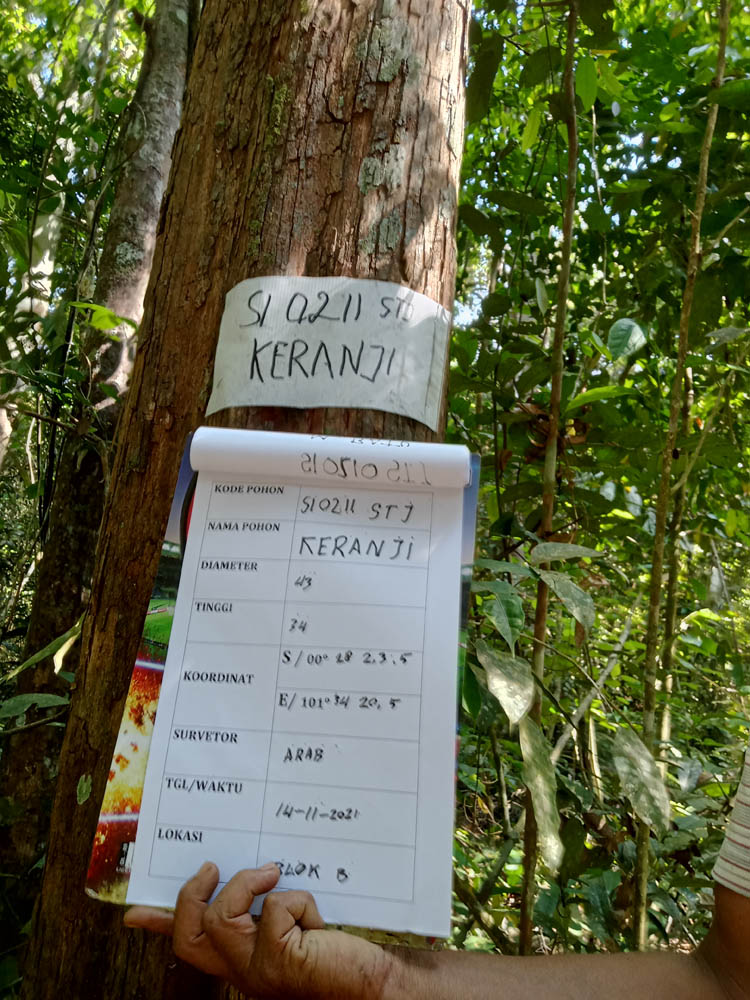 SI 0211 STJ
KERANJI
KODE POHON SI0211 STJ
NAMA POHON KERANJI
DIAMETER 43
TINGGI 34
KOORDINAT S / 00° 28 2,3,5
E/ 101° 34 20,5
SURVETOR ARAB
TGL/WAKTU 14-11-2021
LOKASI BLOK B